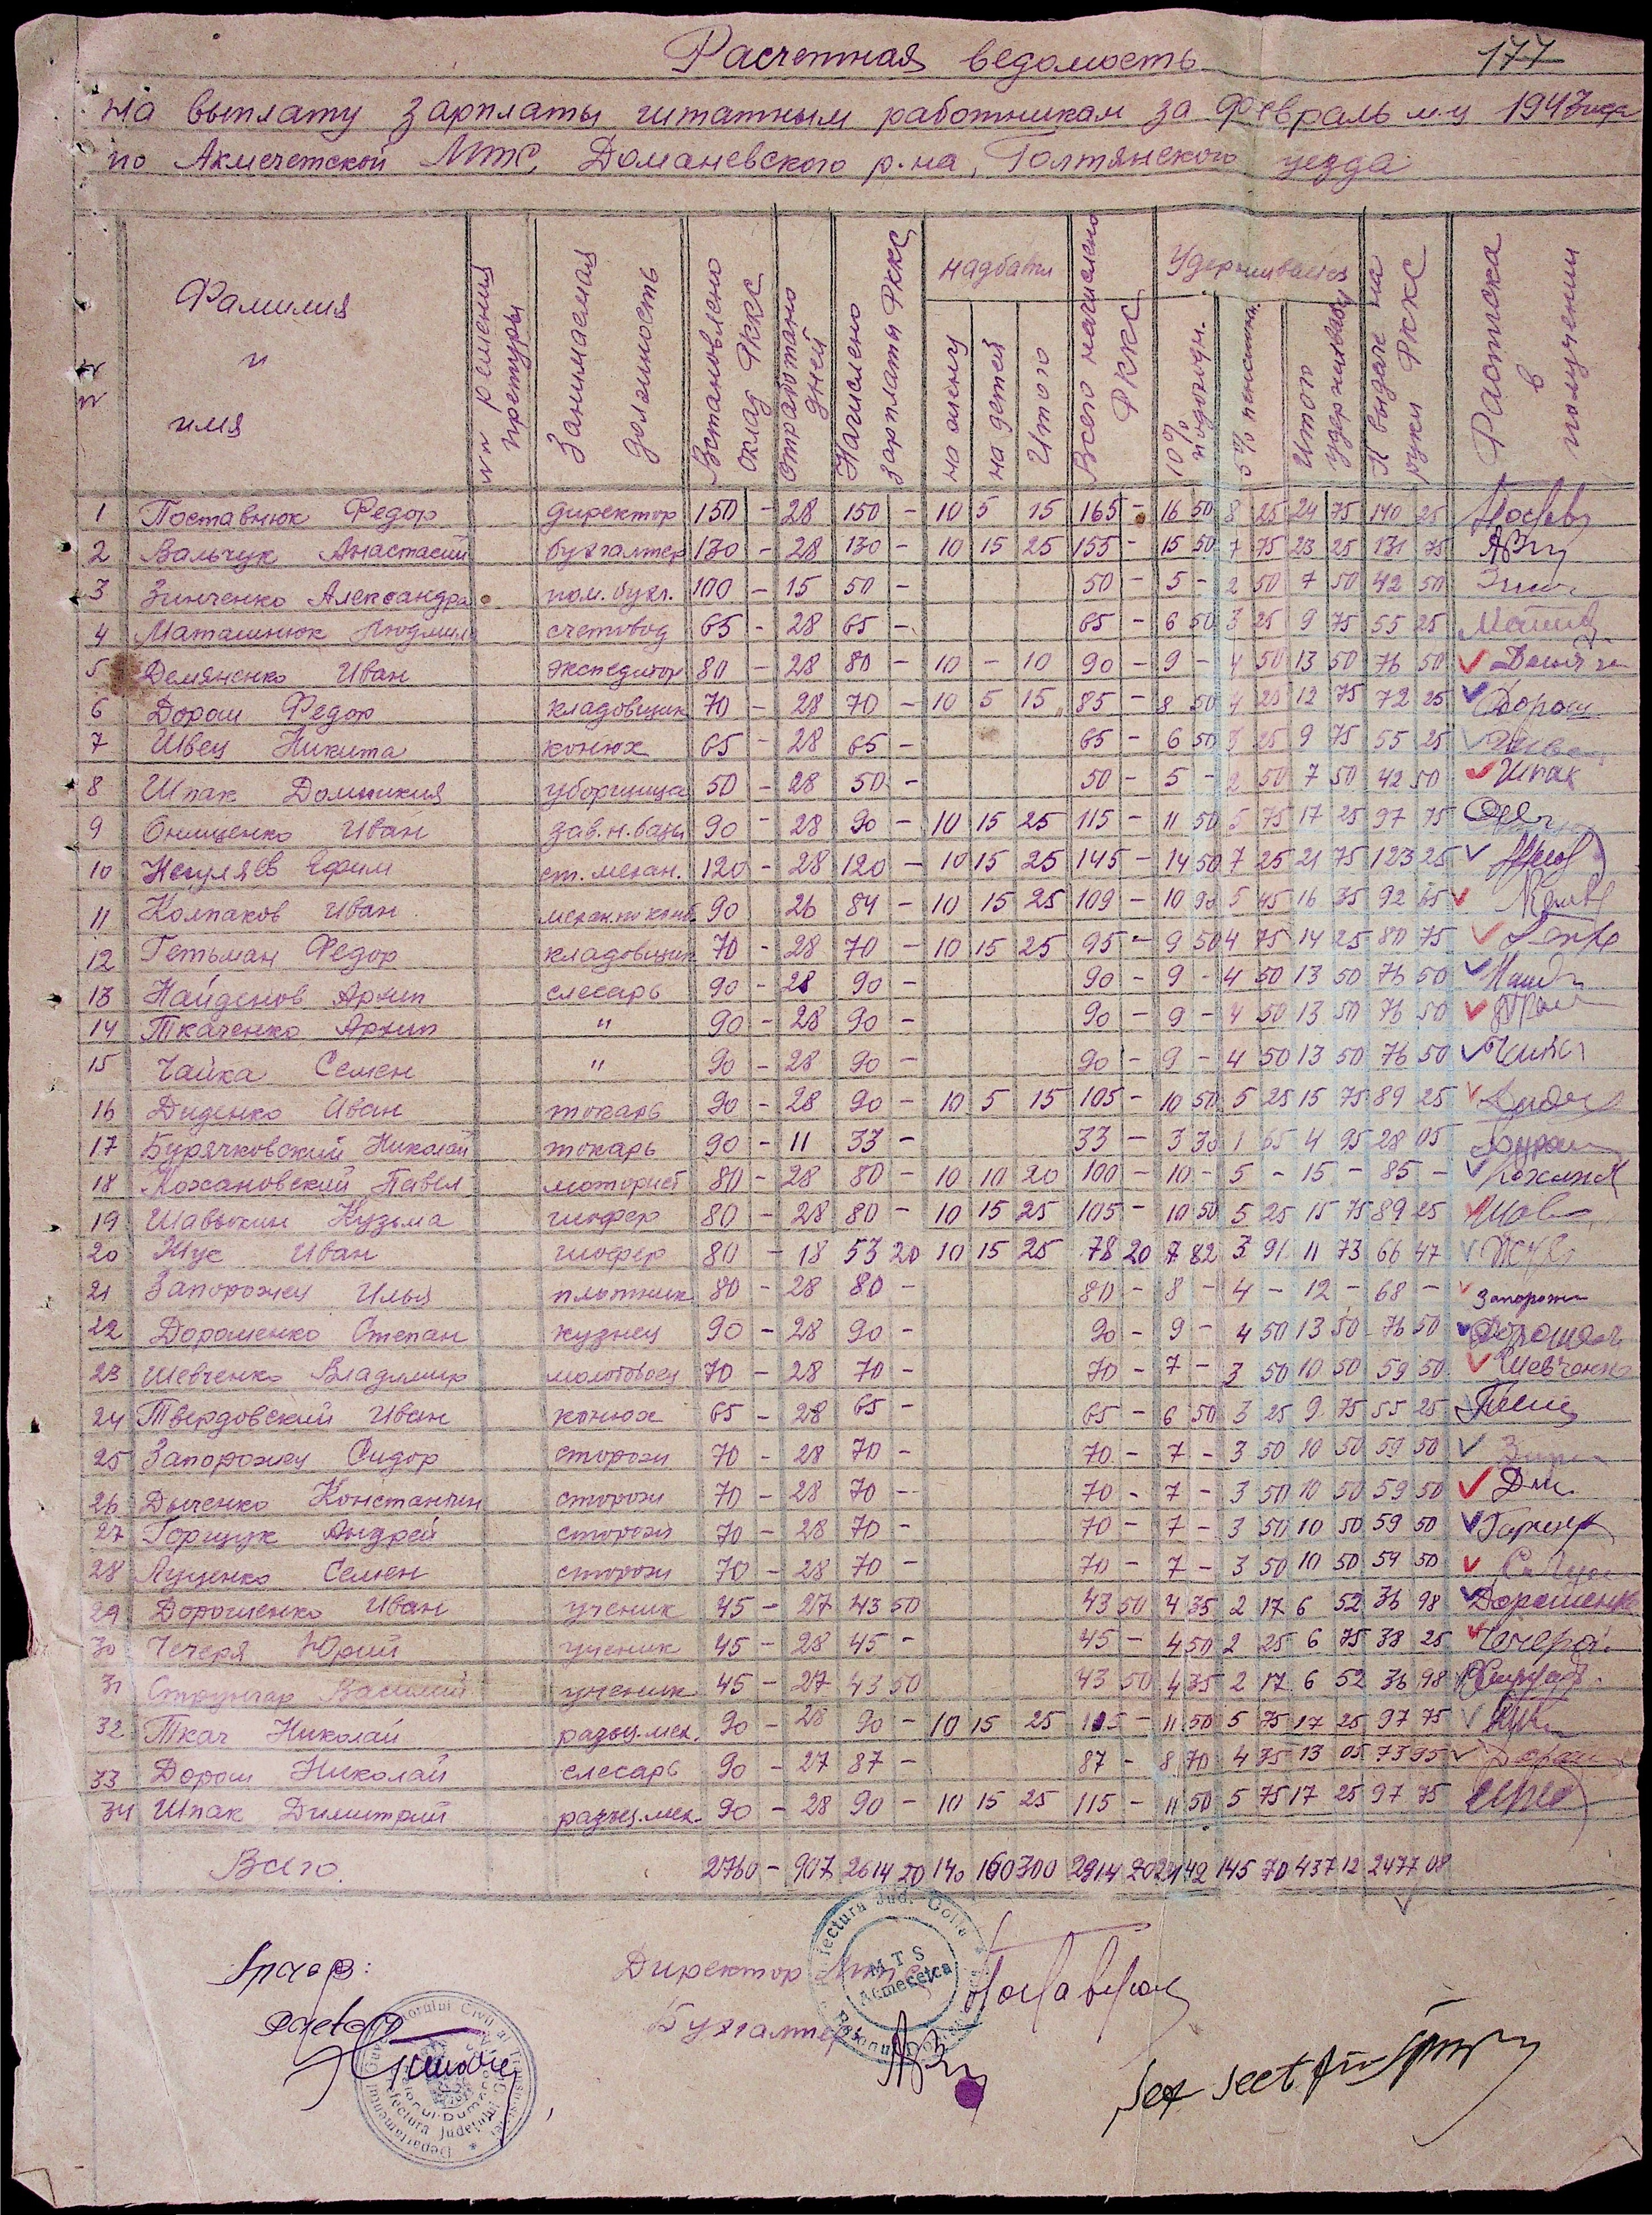 177
Расчетная ведомость
на выплату зарплаты штатным работникам за февраль м-ц 1943 года
по Акмечетской МТС, Доманевского р-на, Голтянского уезда
№№ Фамилия и имя №№ решения претуры Занимаемая должность Встановлено оклад РККС Отработано дней Начислено зарплаты РККС надбавки на жену на детей Итого Всего начислено РККС Удерживается 10% подоходн. 5% пенсион. Итого удерживается К выдаче на руки РККС Расписка в получении
1 Поставнюк Федор директор 150 - 28 150 - 10 5 15 165 - 16 50 8 25 24 75 140 25
2 Вальчук Анастасий бухгалтер 130 - 28 130 - 10 15 25 155 - 15 50 7 75 23 25 131 75
3 Зинченко Александра пом. бухг. 100 - 15 50 - 50 - 5 - 2 50 7 50 42 50
4 Маташнюк Людмила счетовод 65 - 28 65 - 65 - 6 50 3 25 9 75 55 25
5 Демяненко Иван экспедитор 80 - 28 80 - 10 - 10 90 - 9 - 4 50 13 50 76 50
6 Дорош Федор кладовщик 70 - 28 70 - 10 5 15 85 - 8 50 4 25 12 75 72 25 Дорош
7 Швец Никита конюх 65 - 28 65 - 65 - 6 50 3 25 9 75 55 25
8 Шпак Домникия уборщица 50 - 28 50 - 50 - 5 - 2 50 7 50 42 50 Шпак
9 Онищенко Иван зав. н. базы 90 - 28 90 - 10 15 25 115 - 11 50 5 75 17 25 97 75
10 Негуляев Ефим ст. механ. 120 - 28 120 - 10 15 25 145 - 14 50 7 25 21 75 123 25
11 Колпаков Иван механ. по комб 90 26 84 - 10 15 25 109 - 10 90 5 45 16 35 92 65
12 Гетьман Федор кладовщик 70 - 28 70 - 10 15 25 95 - 9 50 4 75 14 25 80 75
13 Найденов Архип слесарь 90 - 28 90 - 90 - 9 - 4 50 13 50 76 50
14 Ткаченко Архип " 90 - 28 90 - 90 - 9 - 4 50 13 50 76 50
15 Чайка Семен " 90 - 28 90 - 90 - 9 - 4 50 13 50 76 50
16 Диденко Иван токарь 90 - 28 90 - 10 5 15 105 - 10 50 5 25 15 75 89 25
17 Бурячковский Николай токарь 90 - 11 33 - 33 - 3 30 1 65 4 95 28 05
18 Кожановский Павел моторист 80 - 28 80 - 10 10 20 100 - 10 - 5 - 15 - 85 -
19 Шавыкин Кузьма шофер 80 - 28 80 - 10 15 25 105 - 10 50 5 25 15 75 89 25
20 Жус Иван шофер 80 - 18 53 20 10 15 25 78 20 7 82 3 91 11 73 66 47
21 Запорожец Илья плотник 80 - 28 80 - 80 - 8 - 4 - 12 - 68 -
22 Дорошенко Степан кузнец 90 - 28 90 - 90 - 9 - 4 50 13 50 76 50
23 Шевченко Владимир молотобоец 70 - 28 70 - 70 - 7 - 3 50 10 50 59 50 Шевченко
24 Твердовский Иван конюх 65 - 28 65 - 65 - 6 50 3 25 9 75 55 25
25 Запорожец Сидор сторож 70 - 28 70 - 70 - 7 - 3 50 10 50 59 50
26 Дьяченко Константин сторож 70 - 28 70 - 70 - 7 - 3 50 10 50 59 50
27 Горщук Андрей сторож 70 - 28 70 - 70 - 7 - 3 50 10 50 59 50
28 Луценко Семен сторож 70 - 28 70 - 70 - 7 - 3 50 10 50 59 50
29 Дорошенко Иван ученик 45 - 27 43 50 43 50 4 35 2 17 6 52 36 98 Дорошенко
30 Чечеря Юрий ученик 45 - 28 45 - 45 - 4 50 2 25 6 75 38 25
31 Стрингар Василий ученик 45 - 27 43 50 43 50 4 35 2 17 6 52 36 98
32 Ткач Николай разъц. мех. 90 - 28 90 - 10 15 25 115 - 11 50 5 75 17 25 97 75
33 Дорош Николай слесарь 90 - 27 87 - 87 - 8 70 4 35 13 05 73 95
34 Шпак Димитрий разъц. мех. 90 - 28 90 - 10 15 25 115 - 11 50 5 75 17 25 97 75
Всего 2760 - 907 2614 20 140 160 300 2914 20 291 42 145 70 437 12 2477 08
Директор МТС
Бухгалтер
MTS Acmecetca